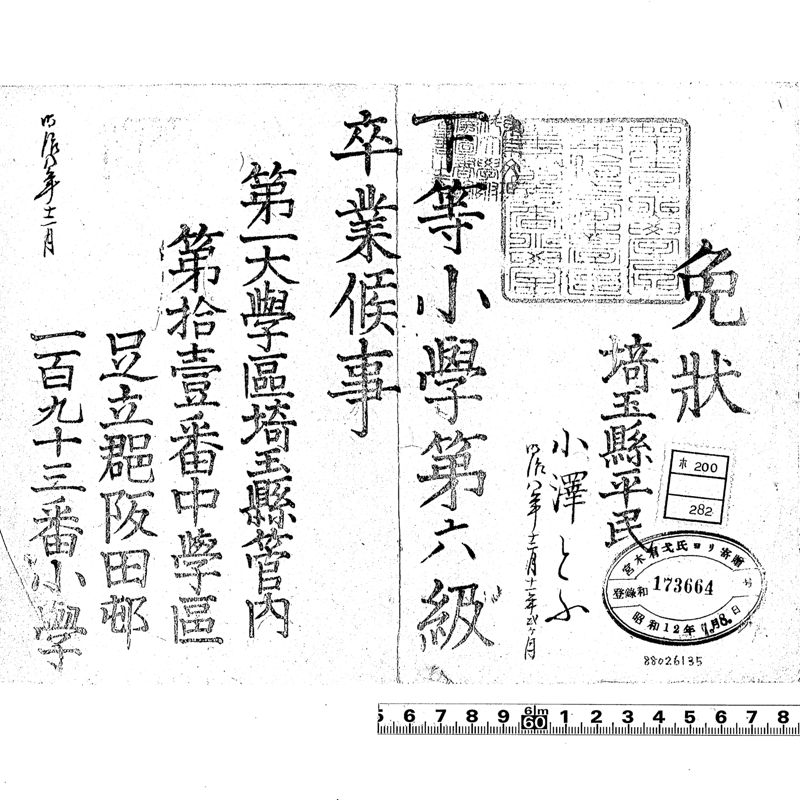 免狀
埼玉縣平民
小澤とふ
明治八年十二月十一年弐ヶ月
下等小學第六級
卒業候事
第一大學區埼玉縣管内
第拾壹番中學區
足立郡阪田邨
一百九十三番小學
明治八年十二月
ホ 200
282
宮本有弌氏ヨリ寄贈
登錄和 173664 号
昭和12年11月8日
88026135
5 6 7 8 9 6m 60 1 2 3 4 5 6 7 8